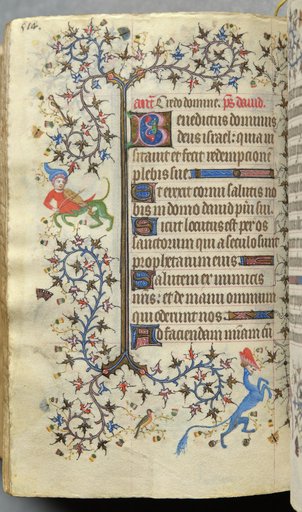 514.
aut. Credo domine. ps. dauid.
Benedictus dominus
deus israel: quia ui
sitauit et fecit redempcione
plebis sue
Et erexit cornu salutis no
bis in domo dauid pueri sui.
Sicut locutus est per os
sanctorum qui a seculo sunt
prophetarum eius
Salutem ex inimicis
nris: et de manu omnium
qui oderunt nos
Ad faciendam